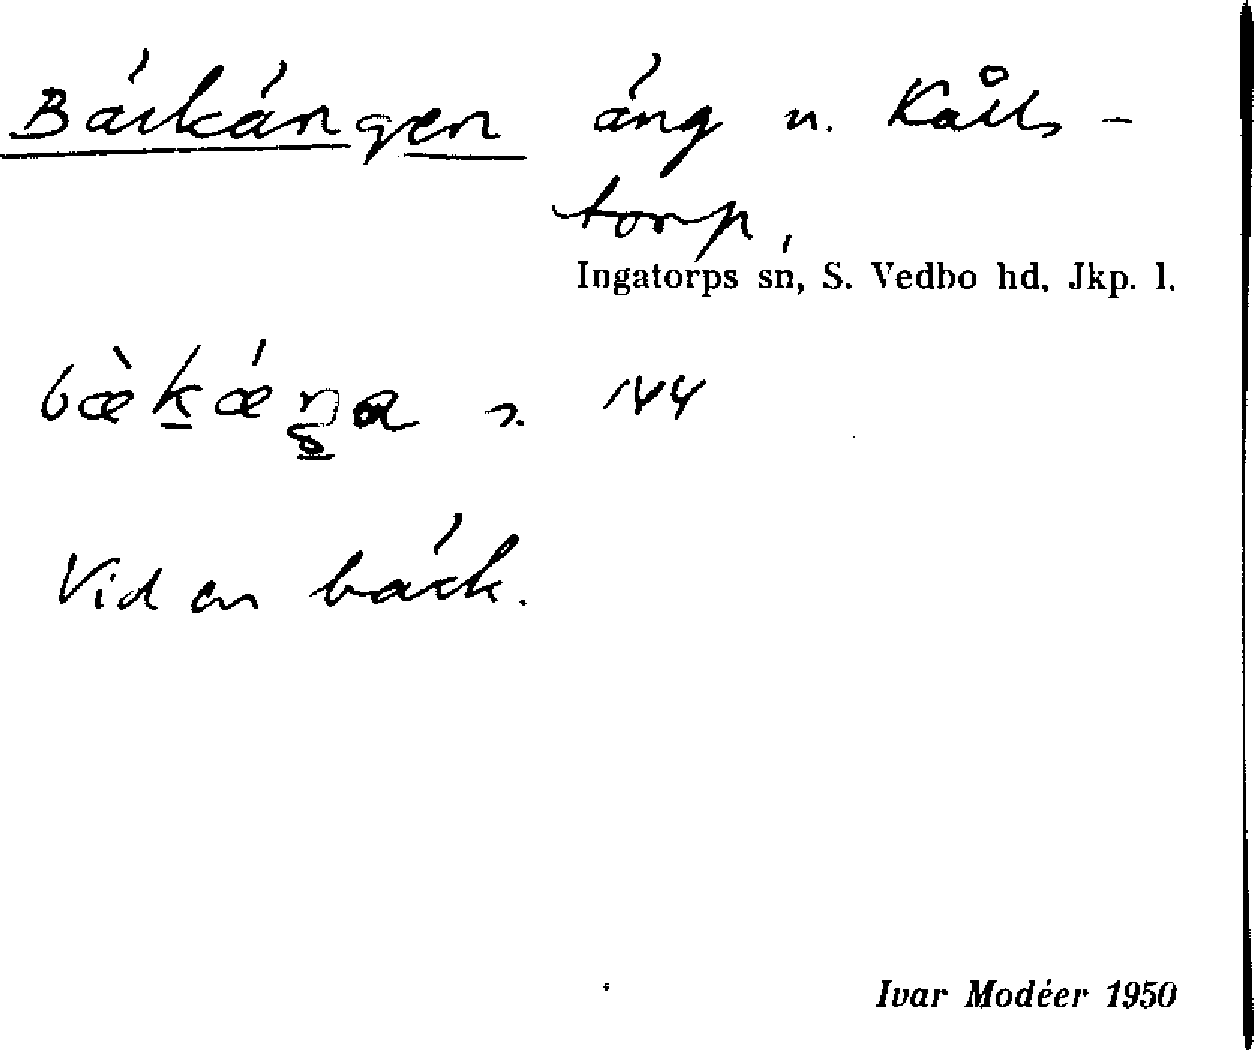 Bäckängen äng n. Kåls-
torp,
Ingatorps sn, S. Vedbo hd, Jkp. l.
bæ̀kǽŋa n. 144
Vid en bäck.
Ivar Modéer 1950